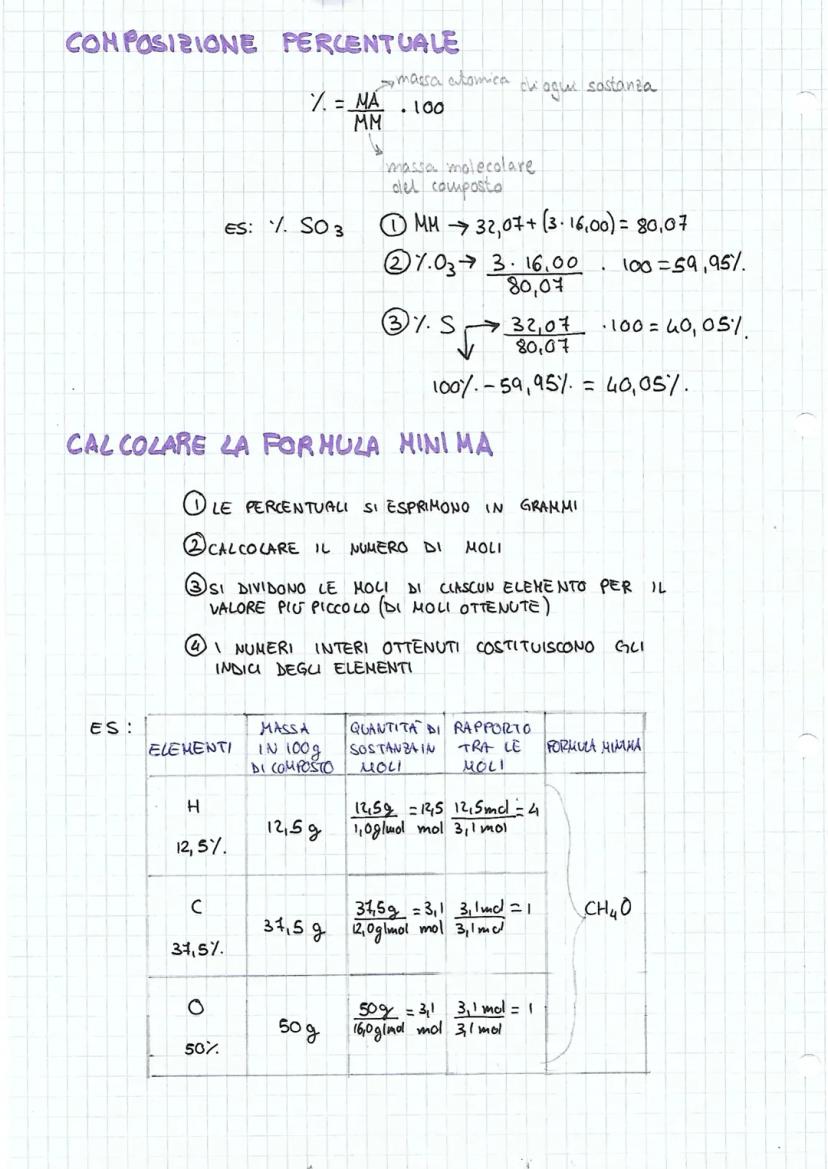 COMPOSIZIONE PERCENTUALE
massa atomica di ogni sostanza
% = MA/MM · 100
massa molecolare
del composto
ES: % SO₃ ① MM → 32,07 + (3 · 16,00) = 80,07
② % O₃ → 3 · 16,00 / 80,07 · 100 = 59,95%.
③ % S → 32,07 / 80,07 · 100 = 40,05%.
100% - 59,95% = 40,05%.
CALCOLARE LA FORMULA MINIMA
① LE PERCENTUALI SI ESPRIMONO IN GRAMMI
② CALCOLARE IL NUMERO DI MOLI
③ SI DIVIDONO LE MOLI DI CIASCUN ELEMENTO PER IL
VALORE PIÙ PICCOLO (DI MOLI OTTENUTE)
④ I NUMERI INTERI OTTENUTI COSTITUISCONO GLI
INDICI DEGLI ELEMENTI
ES:
ELEMENTI
MASSA
IN 100g
DI COMPOSTO
QUANTITÀ DI
SOSTANZA IN
MOLI
RAPPORTO
TRA LE
MOLI
FORMULA MINIMA
H
12,5%.
12,5 g
12,5g / 1,0g/mol = 12,5 mol
12,5mol / 3,1 mol = 4
C
37,5%.
37,5 g
37,5g / 12,0g/mol = 3,1 mol
3,1mol / 3,1mol = 1
CH₄O
O
50%.
50 g
50g / 16,0g/mol = 3,1 mol
3,1 mol / 3,1 mol = 1